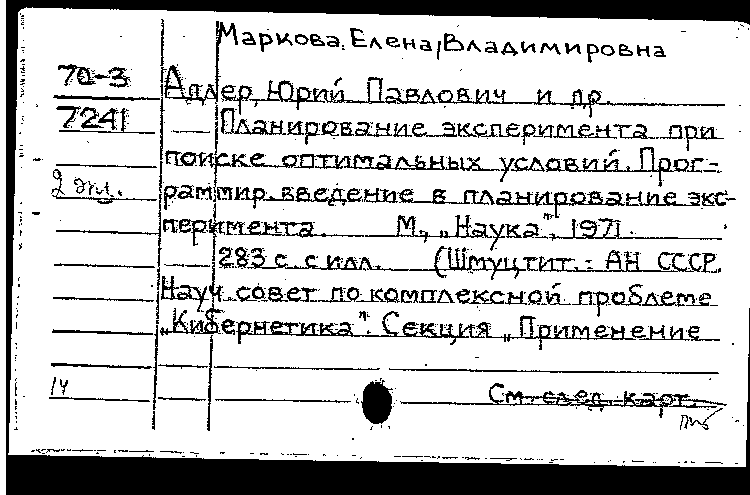 Маркова, Елена Владимировна
70-3 Адлер, Юрий Павлович и др.
7241 Планирование эксперимента при
поиске оптимальных условий. Прог-
2 эт. раммир. введение в планирование экс-
перимента. М., „Наука", 1971.
283 с. с илл. (Шмуцтит.: АН СССР.
Науч. совет по комплексной проблеме
„Кибернетика". Секция „Применение
14 См. след. карт.